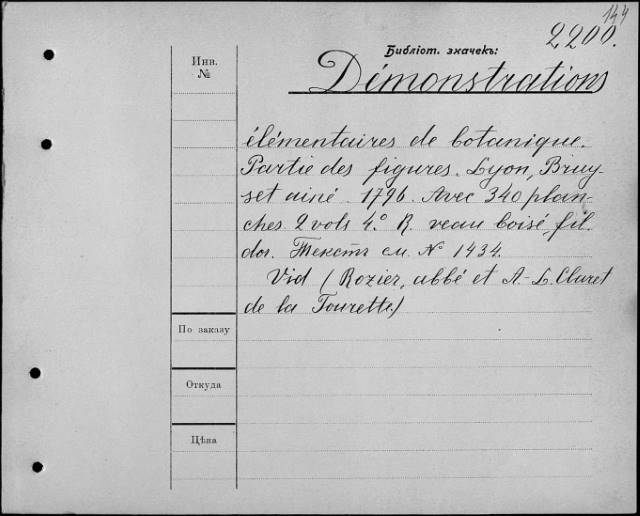 144
2200.
Библіот. значекъ:
Инв.
№
Démonstrations
élémentaires de botanique.
Partie des figures. Lyon, Bruy-
set ainé. 1796. Avec 340 plan-
ches. 2 vols 4º. R. veau boisé, fil.
dor. Текстъ см. № 1434.
Vid (Rozier, abbé et A.-L. Claret
de la Tourette)
По заказу
Откуда
Цѣна